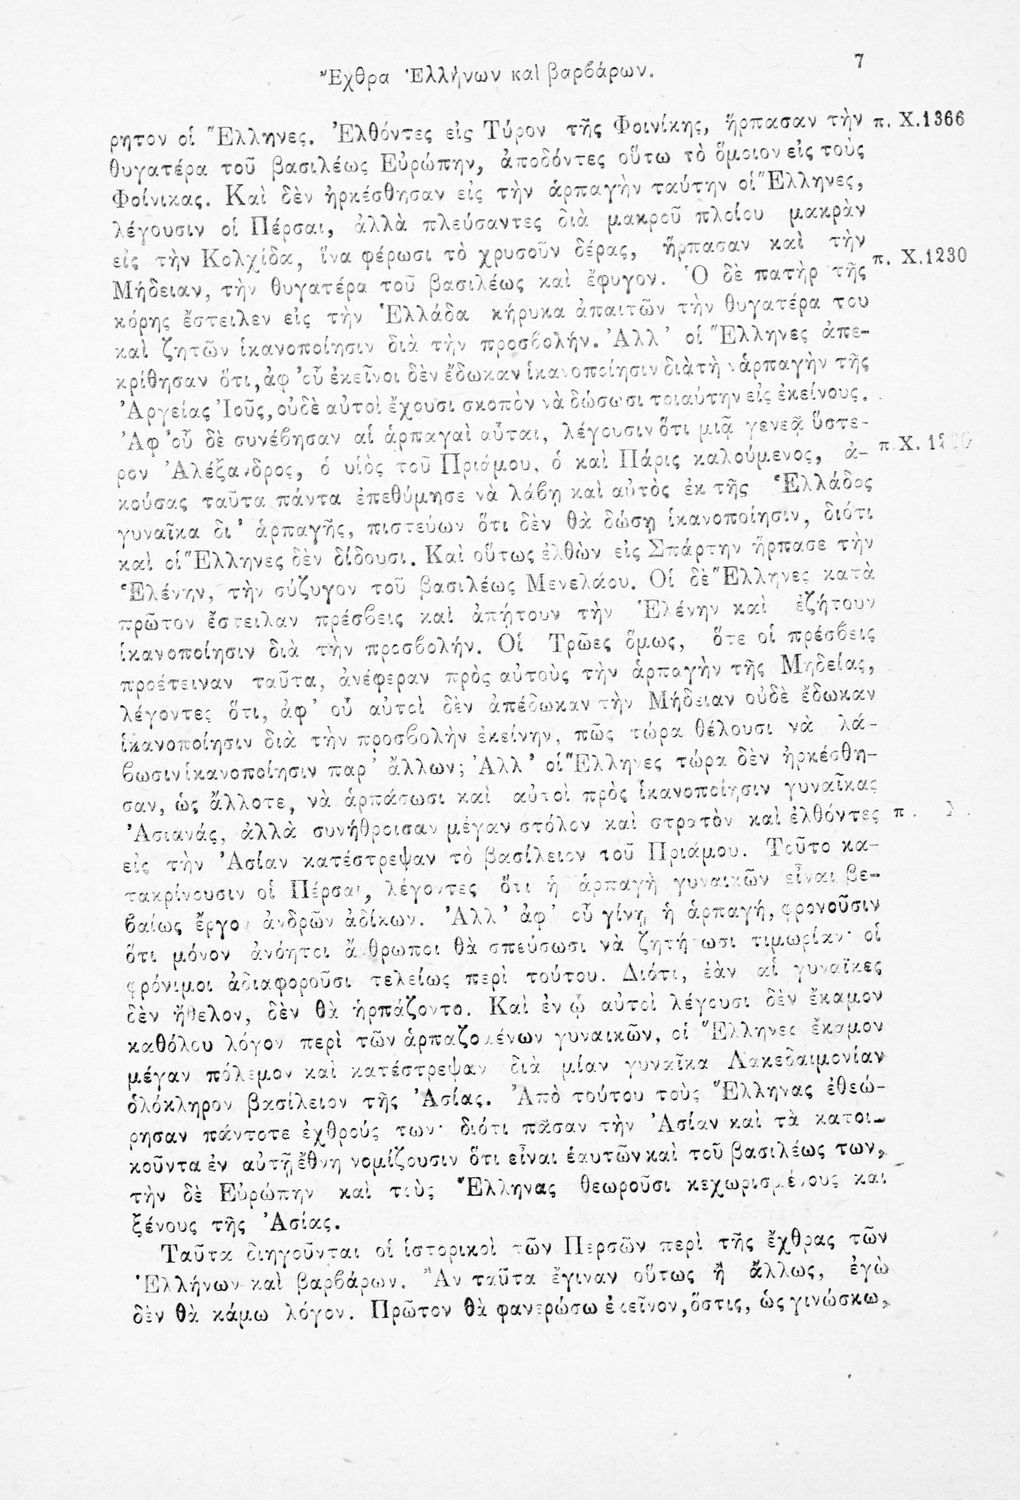 Ἔχθρα Ἑλλήνων καὶ βαρβάρων. 7
ρητον οἱ Ἕλληνες. Ἐλθόντες εἰς Τύρον τῆς Φοινίκης, ἥρπασαν τὴν π. Χ.1366
θυγατέρα τοῦ βασιλέως Εὐρώπην, ἀποδόντες οὕτω τὸ ὅμοιον εἰς τοὺς
Φοίνικας. Καὶ δὲν ἠρκέσθησαν εἰς τὴν ἁρπαγὴν ταύτην οἱ Ἕλληνες,
λέγουσιν οἱ Πέρσαι, ἀλλὰ πλεύσαντες διὰ μακροῦ πλοίου μακρὰν
εἰς τὴν Κολχίδα, ἵνα φέρωσι τὸ χρυσοῦν δέρας, ἥρπασαν καὶ τὴν π. Χ.1230
Μήδειαν, τὴν θυγατέρα τοῦ βασιλέως καὶ ἔφυγον. Ὁ δὲ πατὴρ τῆς
κόρης ἔστειλεν εἰς τὴν Ἑλλάδα κήρυκα ἀπαιτῶν τὴν θυγατέρα του
καὶ ζητῶν ἱκανοποίησιν διὰ τὴν προσβολήν. Ἀλλ' οἱ Ἕλληνες ἀπε-
κρίθησαν ὅτι, ἀφ' οὗ ἐκεῖνοι δὲν ἔδωκαν ἱκανοποίησιν διὰ τὴν ἁρπαγὴν τῆς
Ἀργείας Ἰοῦς, οὐδὲ αὐτοὶ ἔχουσι σκοπὸν νὰ δώσωσι τοιαύτην εἰς ἐκείνους.
Ἀφ' οὗ δὲ συνέβησαν αἱ ἁρπαγαὶ αὗται, λέγουσιν ὅτι μιᾷ γενεᾷ ὕστε-
ρον Ἀλέξανδρος, ὁ υἱὸς τοῦ Πριάμου, ὁ καὶ Πάρις καλούμενος, ἀ- π. Χ.
κούσας ταῦτα πάντα ἐπεθύμησε νὰ λάβῃ καὶ αὐτὸς ἐκ τῆς Ἑλλάδος
γυναῖκα δι' ἁρπαγῆς, πιστεύων ὅτι δὲν θὰ δώσῃ ἱκανοποίησιν, διότι
καὶ οἱ Ἕλληνες δὲν δίδουσι. Καὶ οὕτως ἐλθὼν εἰς Σπάρτην ἥρπασε τὴν
Ἑλένην, τὴν σύζυγον τοῦ βασιλέως Μενελάου. Οἱ δὲ Ἕλληνες κατὰ
πρῶτον ἔστειλαν πρέσβεις καὶ ἀπῄτουν τὴν Ἑλένην καὶ ἐζήτουν
ἱκανοποίησιν διὰ τὴν προσβολήν. Οἱ Τρῶες ὅμως, ὅτε οἱ πρέσβεις
προέτειναν ταῦτα, ἀνέφεραν πρὸς αὐτοὺς τὴν ἁρπαγὴν τῆς Μηδείας,
λέγοντες ὅτι, ἀφ' οὗ αὐτοὶ δὲν ἀπέδωκαν τὴν Μήδειαν οὐδὲ ἔδωκαν
ἱκανοποίησιν διὰ τὴν προσβολὴν ἐκείνην, πῶς τώρα θέλουσι νὰ λά-
βωσιν ἱκανοποίησιν παρ' ἄλλων; Ἀλλ' οἱ Ἕλληνες τώρα δὲν ἠρκέσθη-
σαν, ὡς ἄλλοτε, νὰ ἁρπάσωσι καὶ αὐτοὶ πρὸς ἱκανοποίησιν γυναῖκας
Ἀσιανάς, ἀλλὰ συνήθροισαν μέγαν στόλον καὶ στρατὸν καὶ ἐλθόντες π.
εἰς τὴν Ἀσίαν κατέστρεψαν τὸ βασίλειον τοῦ Πριάμου. Τοῦτο κα-
τακρίνουσιν οἱ Πέρσαι, λέγοντες ὅτι ἡ ἁρπαγὴ γυναικῶν εἶναι βε-
βαίως ἔργον ἀνδρῶν ἀδίκων. Ἀλλ' ἀφ' οὗ γίνῃ ἡ ἁρπαγή, φρονοῦσιν
ὅτι μόνον ἀνόητοι ἄνθρωποι θὰ σπεύσωσι νὰ ζητήσωσι τιμωρίαν· οἱ
φρόνιμοι ἀδιαφοροῦσι τελείως περὶ τούτου. Διότι, ἐὰν αἱ γυναῖκες
δὲν ἤθελον, δὲν θὰ ἡρπάζοντο. Καὶ ἐν ᾧ αὐτοὶ λέγουσι δὲν ἔκαμον
καθόλου λόγον περὶ τῶν ἁρπαζομένων γυναικῶν, οἱ Ἕλληνες ἔκαμον
μέγαν πόλεμον καὶ κατέστρεψαν διὰ μίαν γυναῖκα Λακεδαιμονίαν
ὁλόκληρον βασίλειον τῆς Ἀσίας. Ἀπὸ τούτου τοὺς Ἕλληνας ἐθεώ-
ρησαν πάντοτε ἐχθρούς των· διότι πᾶσαν τὴν Ἀσίαν καὶ τὰ κατοι-
κοῦντα ἐν αὐτῇ ἔθνη νομίζουσιν ὅτι εἶναι ἑαυτῶν καὶ τοῦ βασιλέως των,
τὴν δὲ Εὐρώπην καὶ τοὺς Ἕλληνας θεωροῦσι κεχωρισμένους καὶ
ξένους τῆς Ἀσίας.
Ταῦτα διηγοῦνται οἱ ἱστορικοὶ τῶν Περσῶν περὶ τῆς ἔχθρας τῶν
Ἑλλήνων καὶ βαρβάρων. Ἂν ταῦτα ἔγιναν οὕτως ἢ ἄλλως, ἐγὼ
δὲν θὰ κάμω λόγον. Πρῶτον θὰ φανερώσω ἐκεῖνον, ὅστις, ὡς γινώσκω,